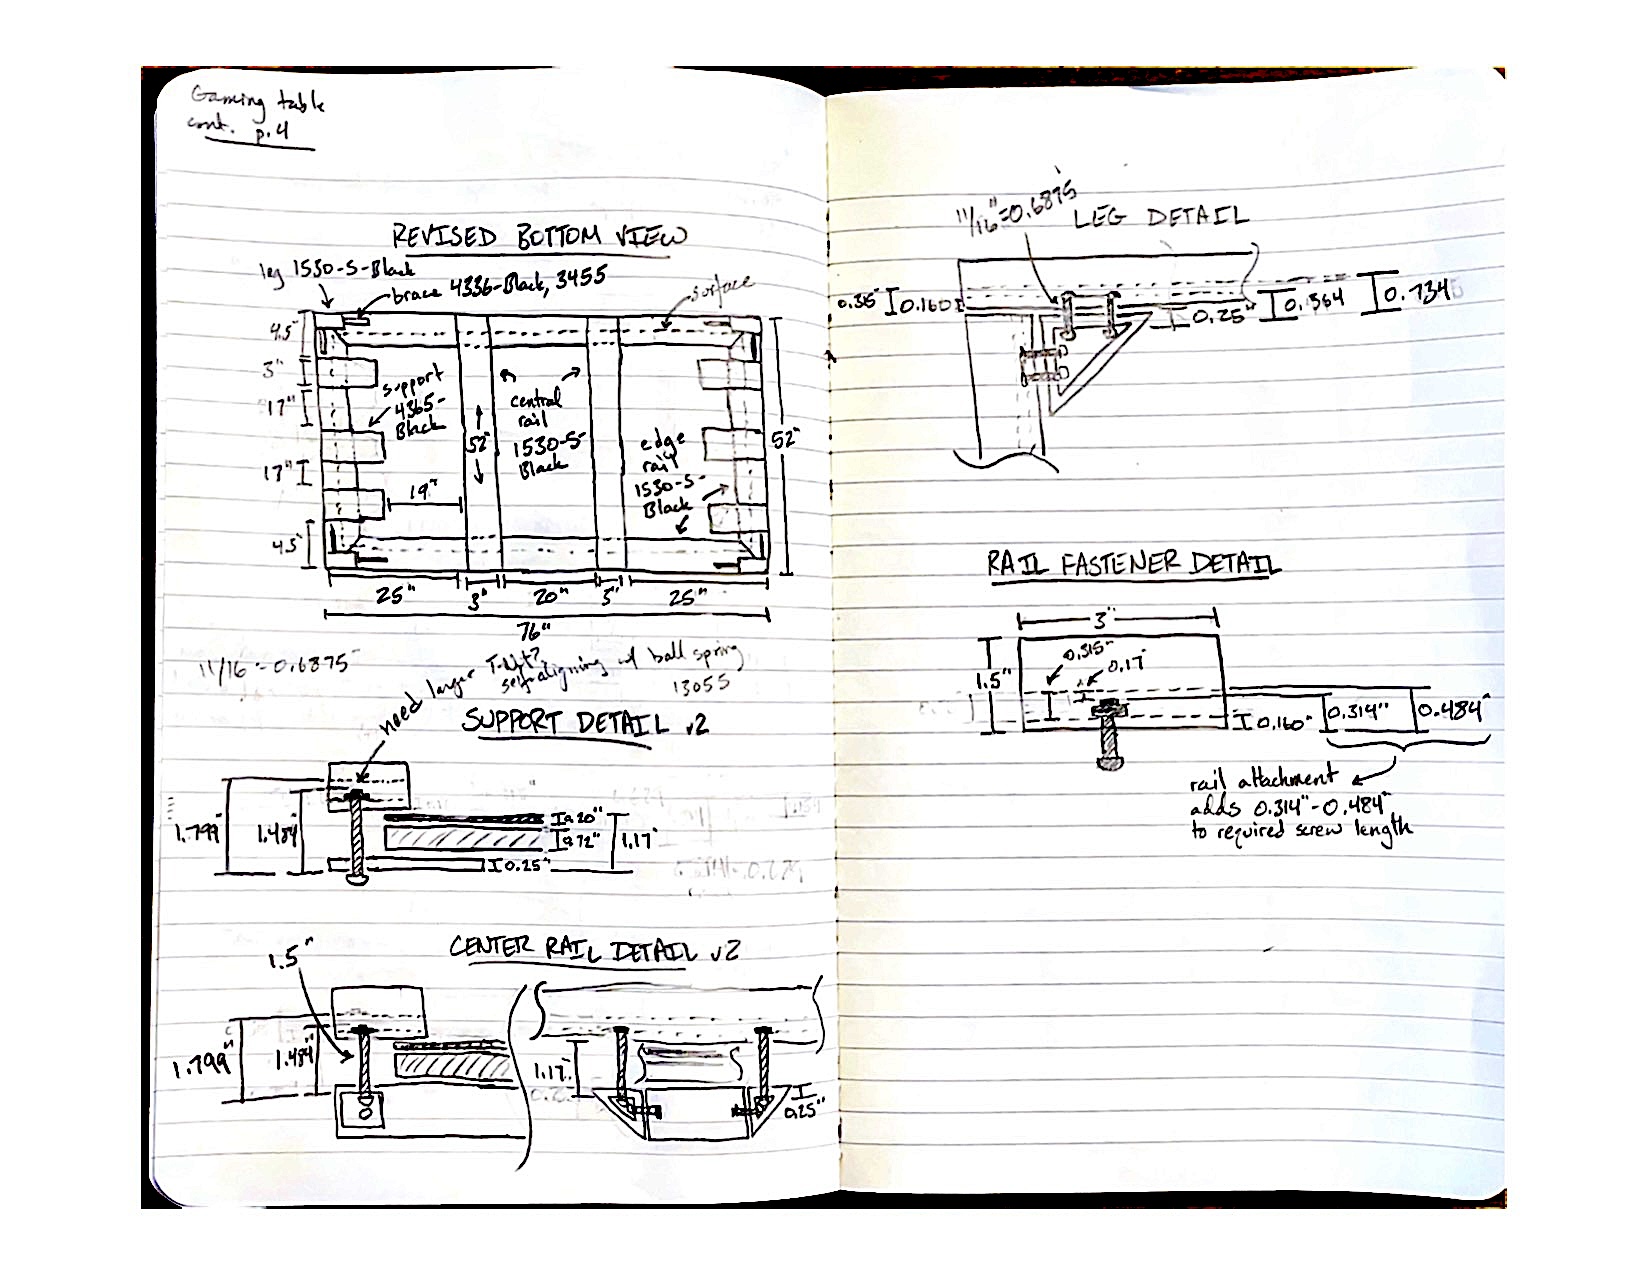 Gaming table
cont. p.4
REVISED BOTTOM VIEW
leg 1530-S-Black
brace 4336-Black, 3455
surface
4.5"
3"
17"
17"
4.5"
support
4365-
Black
19"
52"
central
rail
1530-S-
Black
edge
rail
1530-S-
Black
52"
25"
3"
20"
3"
25"
76"
11/16 = 0.6875
need larger T-Nut?
self-aligning w/ ball spring
13055
SUPPORT DETAIL v2
1.799"
1.484"
0.20"
0.72"
1.17"
0.25"
CENTER RAIL DETAIL v2
1.5"
1.799"
1.484"
1.17"
0.25"
11/16" = 0.6875
LEG DETAIL
0.315"
0.160
0.25"
0.564
0.734
RAIL FASTENER DETAIL
3"
1.5"
0.315"
0.17"
0.160"
0.314"
0.484"
rail attachment
adds 0.314"-0.484"
to required screw length